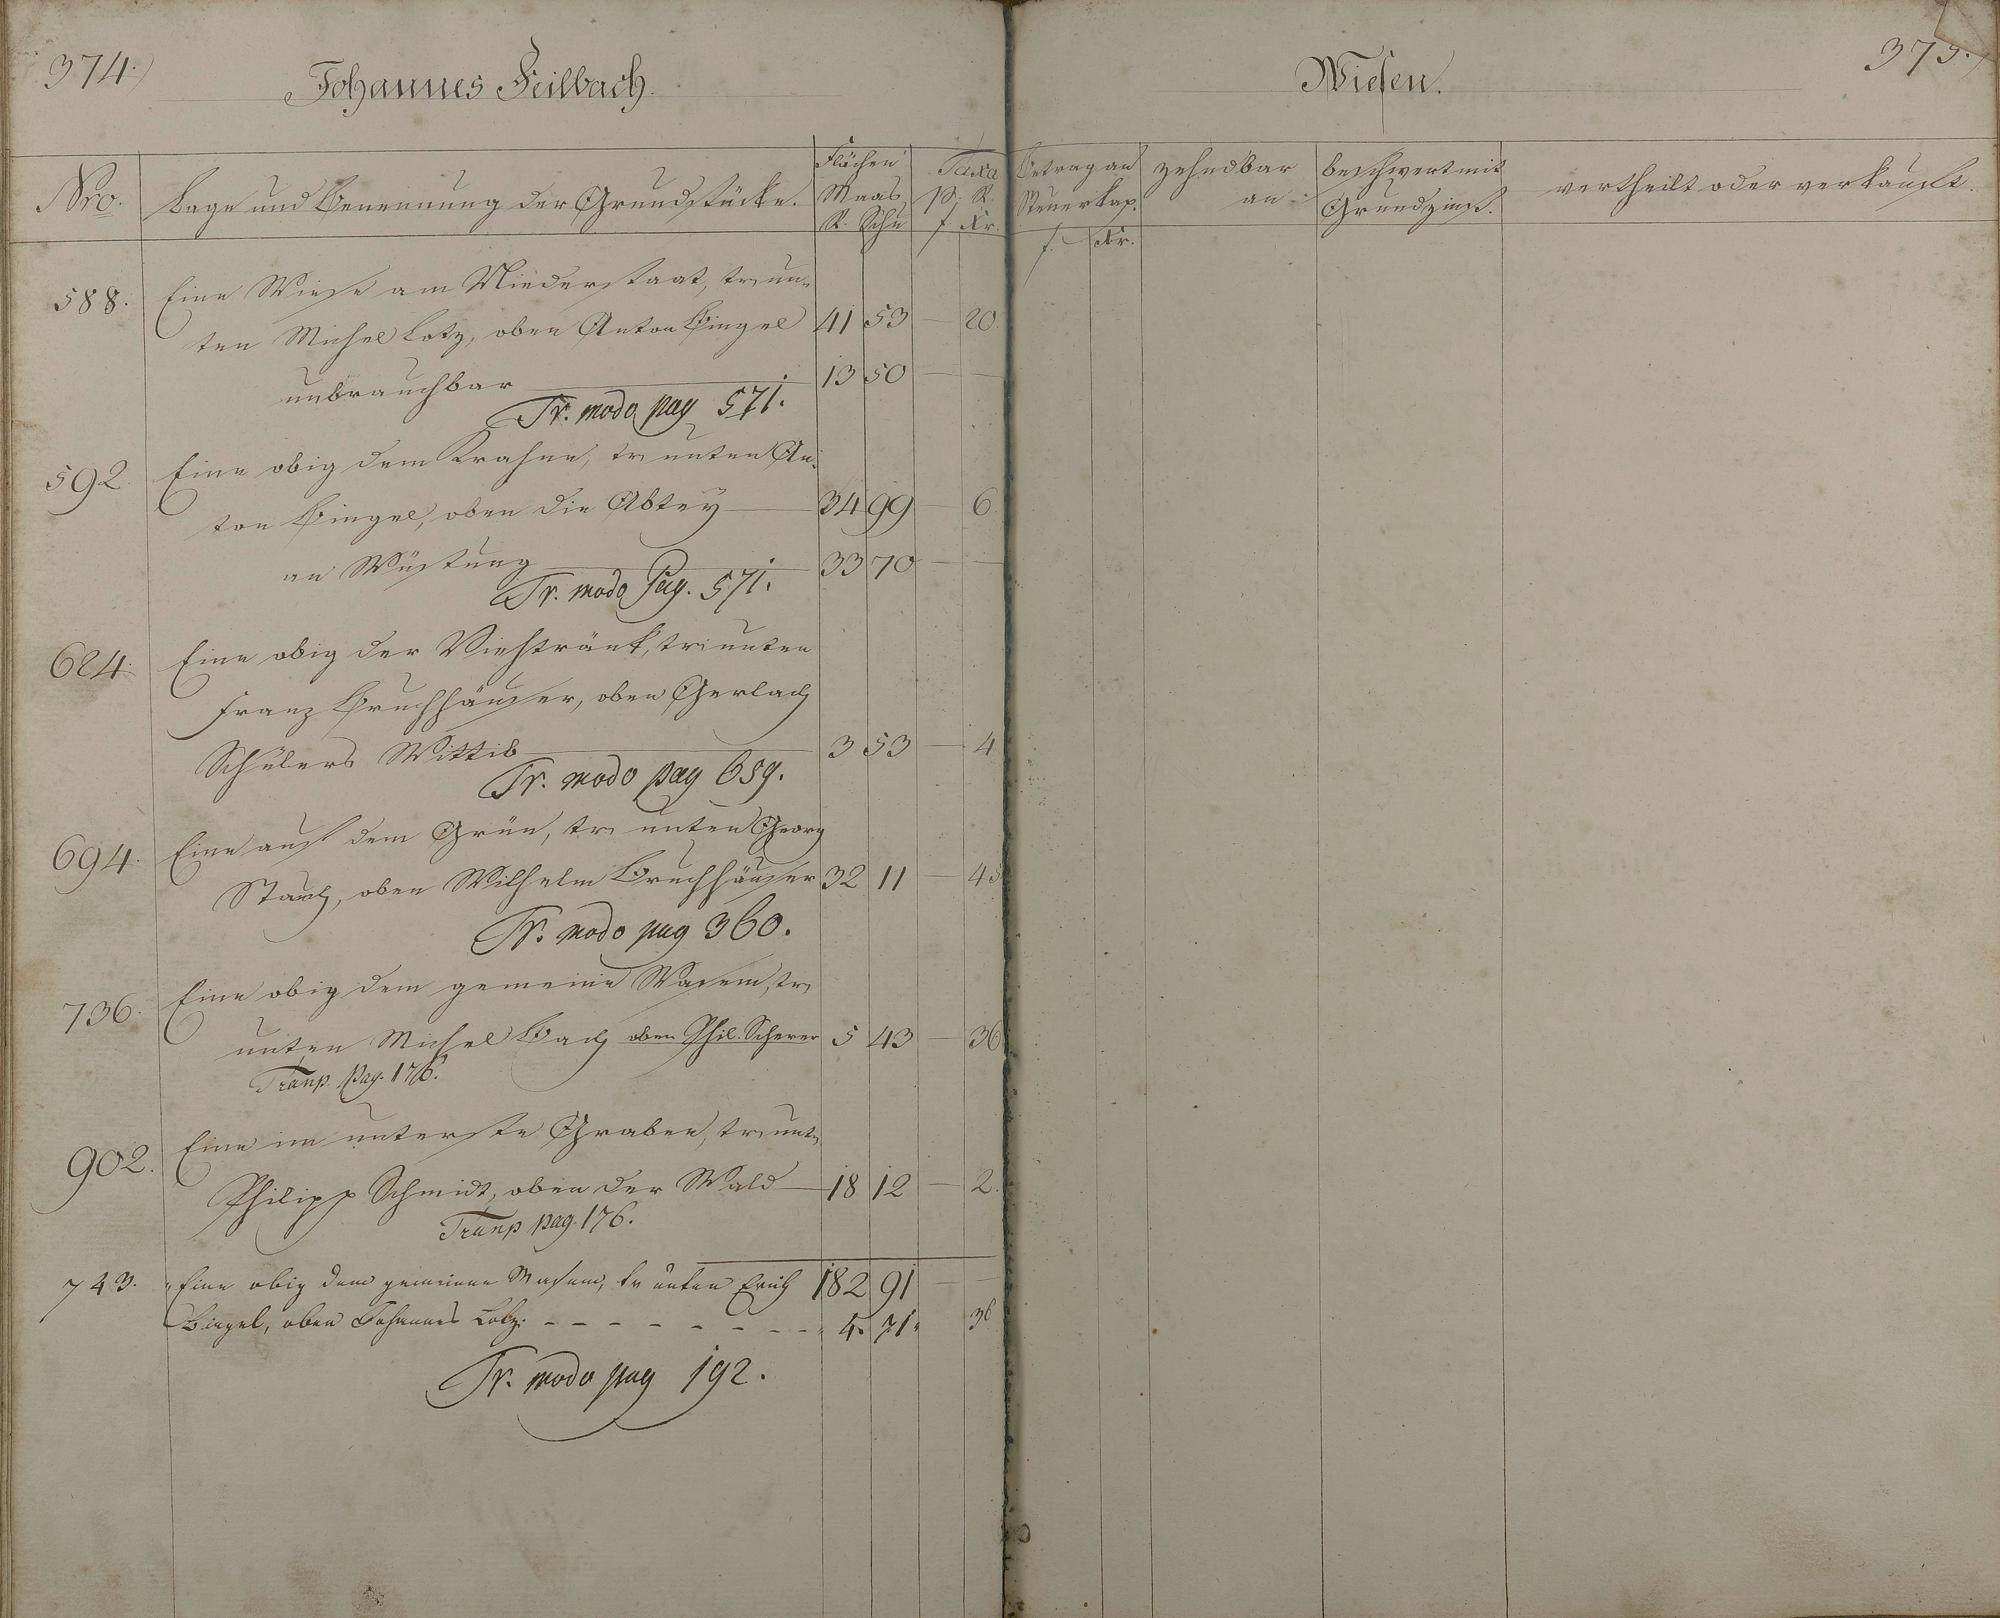 374.)
Johannes Feilbach.
Nro.
Lage und Benennung der Grundstücke.
Flächen
Maas
R. Schu
Taxa
p. R.
f Xr.
588.
Eine Wiese am Niederstaat, tr. un-
ten Michel Lotz, oben Anton Bingel 41 53 — 20.
unbrauchbar — 13 50 — —
Tr. modo pag 571.
592.
Eine obig dem Krahne, tr. unten An-
ton Bingel, oben die Abtey — 34 99 — 6
an Wüstung — 33 70 — —
Tr. modo Pag. 571.
624.
Eine obig der Viehtränk, tr. unten
Franz Bruchhäuser, oben Gerlach
Schülers Wittib — 3 53 — 4
Tr. modo pag 659.
694.
Eine auf dem Grün, tr. unten Georg
Stauch, oben Wilhelm Bruchhäuser 32 11 — 45
Tr. modo pag 360.
736.
Eine obig dem gemeine Wasem, tr.
unten Michel Bach oben Phil. Scherer 5 43 — 36
Tranp. Pag. 176.
902.
Eine im unterste Graben, tr. unt.
Philipp Schmidt, oben der Wald — 18 12 — 2.
Tranp pag. 176.
182 91 — —
743.
Eine obig dem gemeinen Wasem, tr unten Erich
Bingel, oben Johannes Lotz. - - - - - - - - 4. 71. 36
Tr. modo pag 192.
Wiesen.
375.)
Betrag an
Steuerkap.
f. Xr.
zehndbar
an
beschwert mit
Grundzinß.
vertheilt oder verkauft.